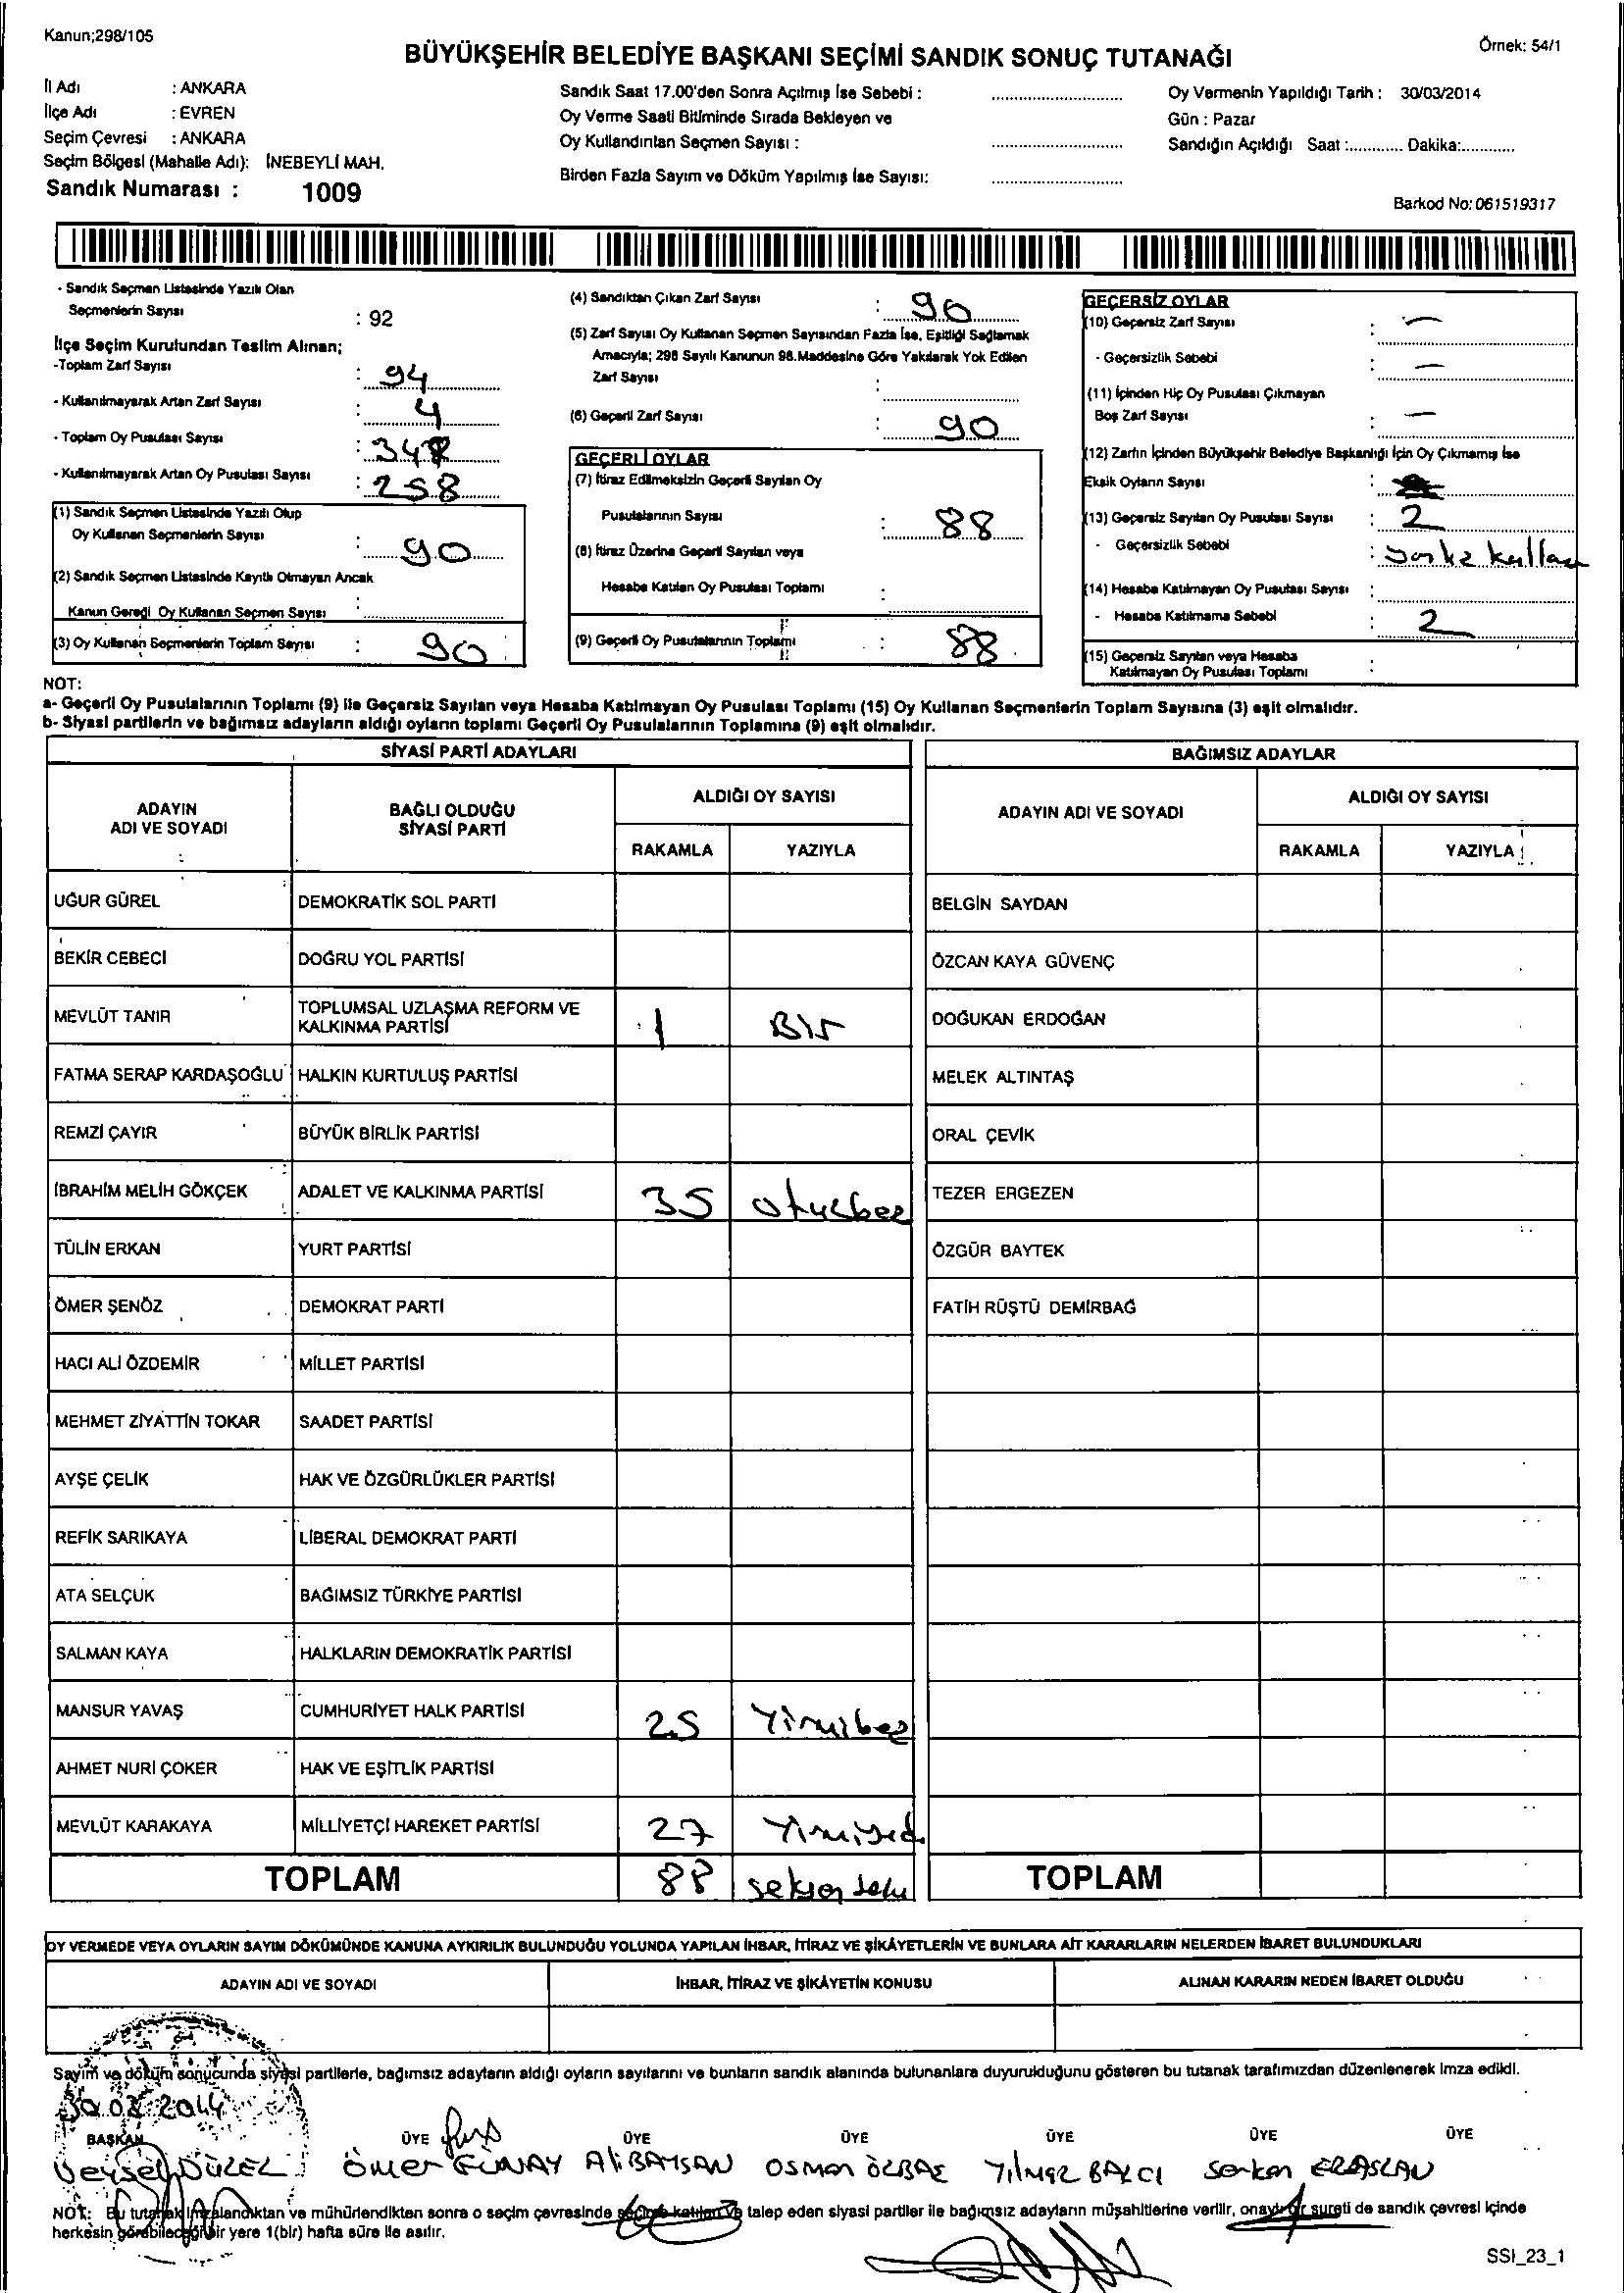 Kanun;298/105
Örnek: 54/1
BÜYÜKŞEHİR BELEDİYE BAŞKANI SEÇİMİ SANDIK SONUÇ TUTANAĞI
İl Adı : ANKARA
İlçe Adı : EVREN
Seçim Çevresi : ANKARA
Seçim Bölgesi (Mahalle Adı): İNEBEYLİ MAH.
Sandık Numarası : 1009
Sandık Saat 17.00'den Sonra Açılmış İse Sebebi :
Oy Verme Saati Bitiminde Sırada Bekleyen ve
Oy Kullandırılan Seçmen Sayısı :
Birden Fazla Sayım ve Döküm Yapılmış İse Sayısı:
Oy Vermenin Yapıldığı Tarih : 30/03/2014
Gün : Pazar
Sandığın Açıldığı Saat :............ Dakika:............
Barkod No: 061519317
- Sandık Seçmen Listesinde Yazılı Olan
Seçmenlerin Sayısı : 92
İlçe Seçim Kurulundan Teslim Alınan;
-Toplam Zarf Sayısı : 94
- Kullanılmayarak Artan Zarf Sayısı : 4
- Toplam Oy Pusulası Sayısı : 348
- Kullanılmayarak Artan Oy Pusulası Sayısı : 258
(1) Sandık Seçmen Listesinde Yazılı Olup
Oy Kullanan Seçmenlerin Sayısı : 90
(2) Sandık Seçmen Listesinde Kayıtlı Olmayan Ancak
Kanun Gereği Oy Kullanan Seçmen Sayısı :
(3) Oy Kullanan Seçmenlerin Toplam Sayısı : 90
(4) Sandıktan Çıkan Zarf Sayısı : 90
(5) Zarf Sayısı Oy Kullanan Seçmen Sayısından Fazla İse, Eşitliği Sağlamak
Amacıyla; 298 Sayılı Kanunun 98.Maddesine Göre Yakılarak Yok Edilen
Zarf Sayısı :
(6) Geçerli Zarf Sayısı : 90
GEÇERLİ OYLAR
(7) İtiraz Edilmeksizin Geçerli Sayılan Oy
Pusulalarının Sayısı : 88
(8) İtiraz Üzerine Geçerli Sayılan veya
Hesaba Katılan Oy Pusulası Toplamı :
(9) Geçerli Oy Pusulalarının Toplamı : 88
GEÇERSİZ OYLAR
(10) Geçersiz Zarf Sayısı : —
- Geçersizlik Sebebi : —
(11) İçinden Hiç Oy Pusulası Çıkmayan
Boş Zarf Sayısı : —
(12) Zarfın İçinden Büyükşehir Belediye Başkanlığı İçin Oy Çıkmamış İse
Eksik Oyların Sayısı :
(13) Geçersiz Sayılan Oy Pusulası Sayısı : 2
- Geçersizlik Sebebi :
(14) Hesaba Katılmayan Oy Pusulası Sayısı :
- Hesaba Katılmama Sebebi : 2
(15) Geçersiz Sayılan veya Hesaba
Katılmayan Oy Pusulası Toplamı :
NOT:
a- Geçerli Oy Pusulalarının Toplamı (9) ile Geçersiz Sayılan veya Hesaba Katılmayan Oy Pusulası Toplamı (15) Oy Kullanan Seçmenlerin Toplam Sayısına (3) eşit olmalıdır.
b- Siyasi partilerin ve bağımsız adayların aldığı oyların toplamı Geçerli Oy Pusulalarının Toplamına (9) eşit olmalıdır.
SİYASİ PARTİ ADAYLARI
ADAYIN ADI VE SOYADI
BAĞLI OLDUĞU SİYASİ PARTİ
ALDIĞI OY SAYISI
RAKAMLA YAZIYLA
UĞUR GÜREL DEMOKRATİK SOL PARTİ
BEKİR CEBECİ DOĞRU YOL PARTİSİ
MEVLÜT TANIR TOPLUMSAL UZLAŞMA REFORM VE KALKINMA PARTİSİ 1 Bir
FATMA SERAP KARDAŞOĞLU HALKIN KURTULUŞ PARTİSİ
REMZİ ÇAYIR BÜYÜK BİRLİK PARTİSİ
İBRAHİM MELİH GÖKÇEK ADALET VE KALKINMA PARTİSİ 35 otuzbeş
TÜLİN ERKAN YURT PARTİSİ
ÖMER ŞENÖZ DEMOKRAT PARTİ
HACI ALİ ÖZDEMİR MİLLET PARTİSİ
MEHMET ZİYATTİN TOKAR SAADET PARTİSİ
AYŞE ÇELİK HAK VE ÖZGÜRLÜKLER PARTİSİ
REFİK SARIKAYA LİBERAL DEMOKRAT PARTİ
ATA SELÇUK BAĞIMSIZ TÜRKİYE PARTİSİ
SALMAN KAYA HALKLARIN DEMOKRATİK PARTİSİ
MANSUR YAVAŞ CUMHURİYET HALK PARTİSİ 25 Yirmibeş
AHMET NURİ ÇOKER HAK VE EŞİTLİK PARTİSİ
MEVLÜT KARAKAYA MİLLİYETÇİ HAREKET PARTİSİ 27
TOPLAM 88
BAĞIMSIZ ADAYLAR
ADAYIN ADI VE SOYADI
ALDIĞI OY SAYISI
RAKAMLA YAZIYLA
BELGİN SAYDAN
ÖZCAN KAYA GÜVENÇ
DOĞUKAN ERDOĞAN
MELEK ALTINTAŞ
ORAL ÇEVİK
TEZER ERGEZEN
ÖZGÜR BAYTEK
FATİH RÜŞTÜ DEMİRBAĞ
TOPLAM
OY VERMEDE VEYA OYLARIN SAYIM DÖKÜMÜNDE KANUNA AYKIRILIK BULUNDUĞU YOLUNDA YAPILAN İHBAR, İTİRAZ VE ŞİKÂYETLERİN VE BUNLARA AİT KARARLARIN NELERDEN İBARET BULUNDUKLARI
ADAYIN ADI VE SOYADI
İHBAR, İTİRAZ VE ŞİKÂYETİN KONUSU
ALINAN KARARIN NEDEN İBARET OLDUĞU
Sayım ve döküm sonucunda siyasi partilerle, bağımsız adayların aldığı oyların sayılarını ve bunların sandık alanında bulunanlara duyurulduğunu gösteren bu tutanak tarafımızdan düzenlenerek imza edildi.
30.03.2014
BAŞKAN ÜYE ÜYE ÜYE ÜYE ÜYE ÜYE
Veysel DÜZEL Ömer GÜNAY Ali BAYSAN Osman ÖZBAE YILMAZ BALCI Serkan ERASLAN
NOT: Bu tutanak imzalandıktan ve mühürlendikten sonra o seçim çevresinde seçime katılan ve talep eden siyasi partiler ile bağımsız adayların müşahitlerine verilir, onaylı bir sureti de sandık çevresi içinde
herkesin görebileceği bir yere 1(bir) hafta süre ile asılır.
SSI_23_1